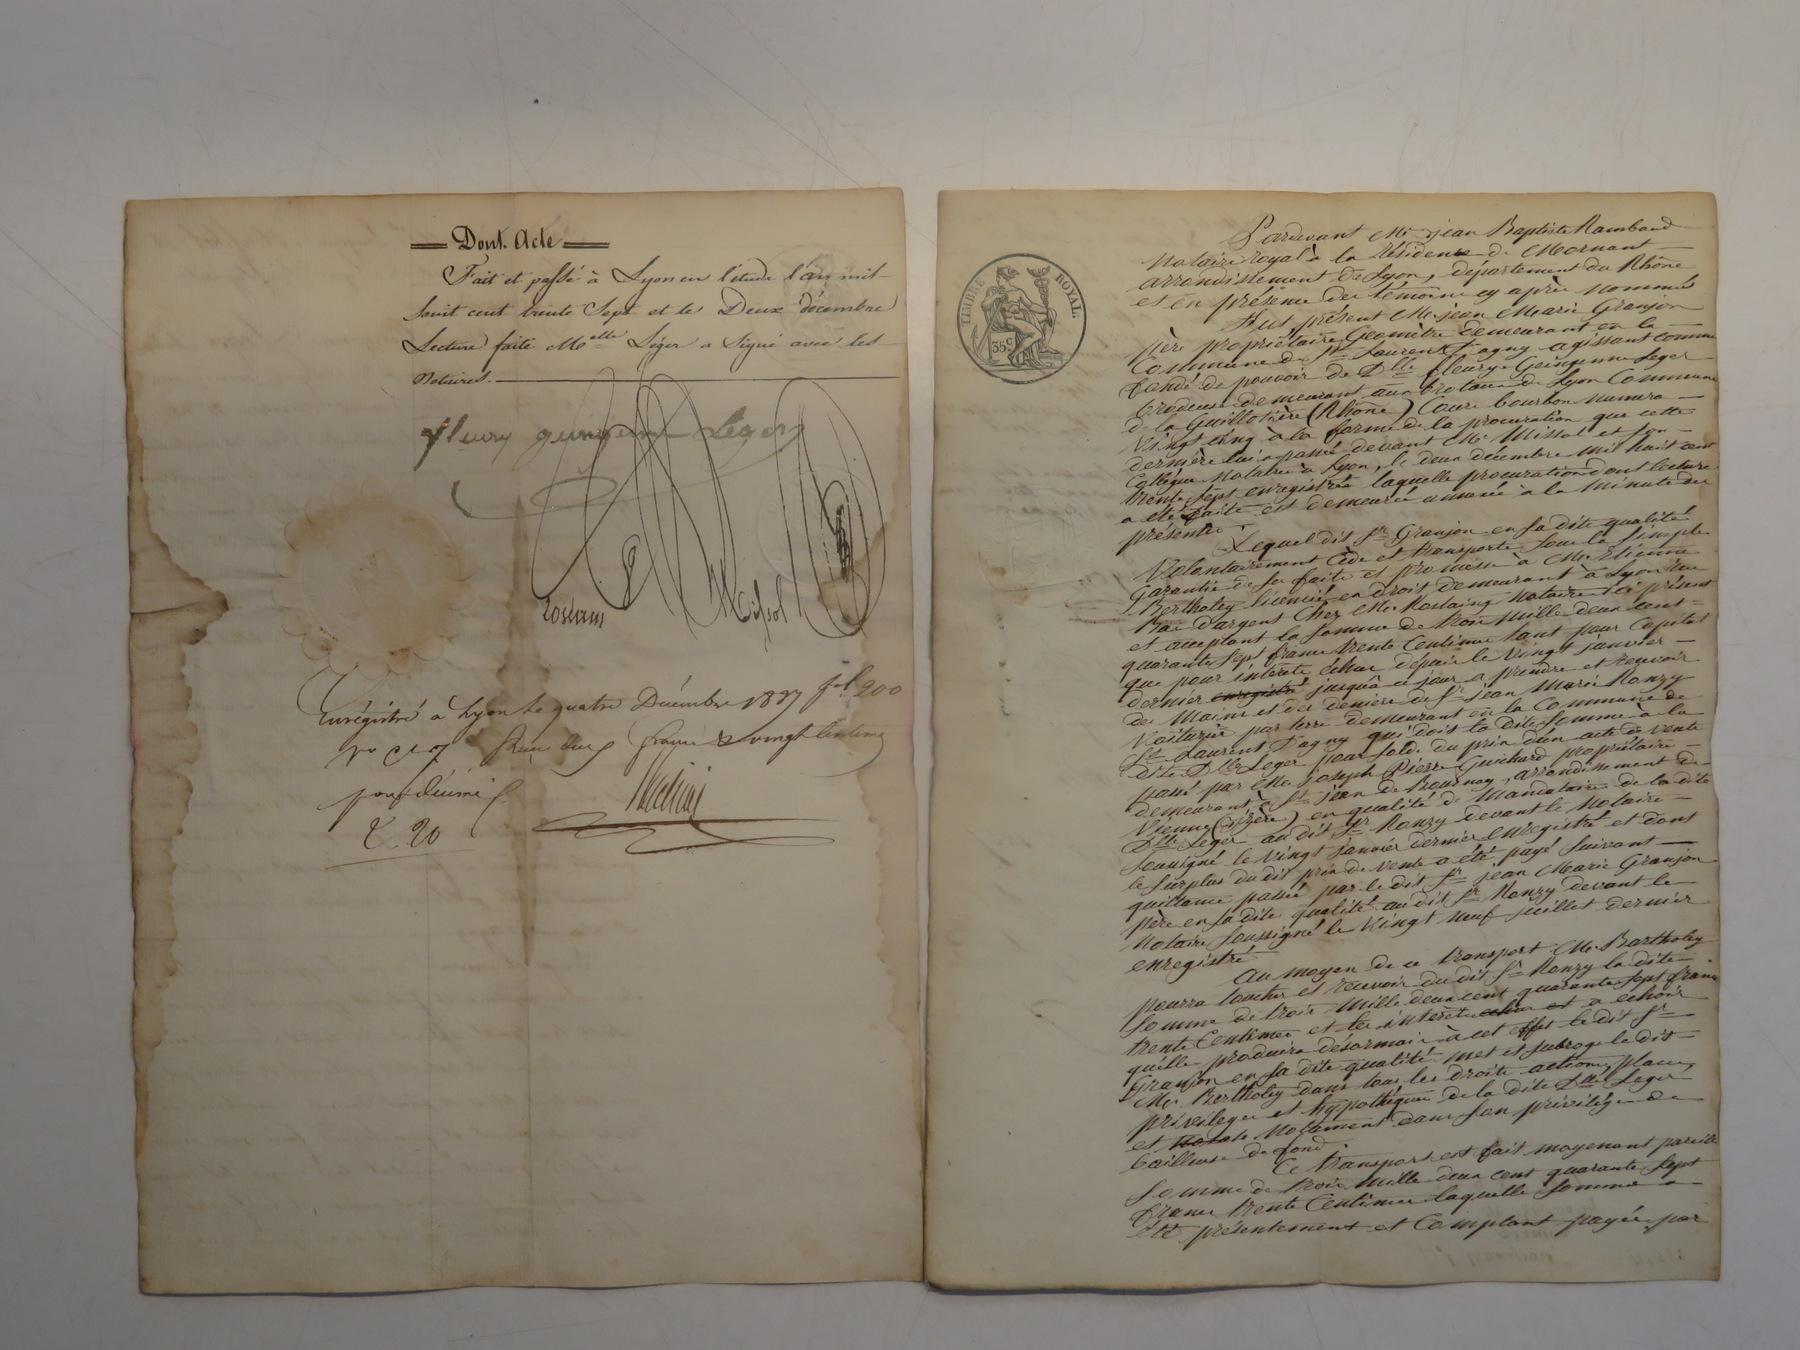 Dont. Acte
Fait et passé à Lyon en l'étude l'an mil
huit cent trente Sept et le Deux décembre
Lecture faite Melle Léger a Signé avec les
Notaires.
fleury guingenne Leger
Missol
Enrégistré à Lyon le quatre Décembre 1837 fol 200
vo c. Reçu deux francs & vingt Centimes
pour décime
2. 20
TIMBRE ROYAL.
35 c.
Pardevant Me jean Baptiste Rambaud
Notaire royal à la Résidence de Mornant
arrondissement de Lyon, département du Rhône
et en présence des témoins cy après nommés
fut présent Me jean Marie Granjon
père propriétaire Géomètre demeurant en la
Commune de St Laurent d'agny agissant comme
fondé de pouvoir de Dlle fleurye Guingenne Leger
brodeuse demeurant aux brotaux de Lyon Commune
de la Guillotière (Rhône) Cour bourbon numéro
Vingt cinq à la forme de la procuration que cette
dernière lui a passé devant Me Missol et son
Collègue Notaires à Lyon, le deux décembre mil huit cent
trente Sept enregistrée laquelle procuration dont lecture
a été faite est demeurée annexée à la Minute des
présentes.
Lequel dit Sr Granjon en sa dite qualité
Volontairement Cède et transporte sous la simple
Garantie de ses faits et promesse à Me Etienne
Bertholey licencié en droit demeurant à Lyon rue
Bas d'argent Chez Me Rostaing Notaire ici présent
et acceptant la somme de trois mille deux cent
quarante Sept francs trente Centimes tant pour Capital
que pour intérêts échus dépuis le Vingt janvier
dernier enregistré jusqu'à ce jour à prendre et recevoir
des Mains et des deniers de Sr jean Marie Ronzy
Voiturier par terre demeurant en la Commune de
St Laurent D'agny qui doit la dite somme à la
dite Dlle Leger pour solde du prix d'un acte de vente
passé par Me joseph Pierre Guichard propriétaire
demeurant à St jean de Bournay, arrondissement de
Vienne (isère) en qualité de Mandataire de la dite
Dlle Leger au dit Sr Ronzy devant le Notaire
soussigné le Vingt janvier dernier enregistré et dont
le surplus du dit prix de vente a été payé suivant
quittance passée par le dit Sr jean Marie Granjon
père en sa dite qualité au dit Sr Ronzy devant le
Notaire soussigné le Vingt neuf juillet dernier
enregistré
Au moyen de ce transport Me Bartholey
pourra toucher et recevoir du dit Sr Ronzy la dite
somme de trois mille deux cent quarante Sept francs
trente Centimes et les intérêts échus et à echoir
qu'elle produira désormais à cet effet le dit Sr
Granjon en sa dite qualité met et subroge le dit
Me Bertholey dans tous les droits actions, places,
privileges et hypothèques de la dite Dlle Leger
et Notament dans son privilège de
bailleuse de fond.
Ce transport est fait moyenant pareille
somme de trois mille deux cent quarante Sept
francs trente Centimes laquelle somme a
été présentement et Comptant payée par